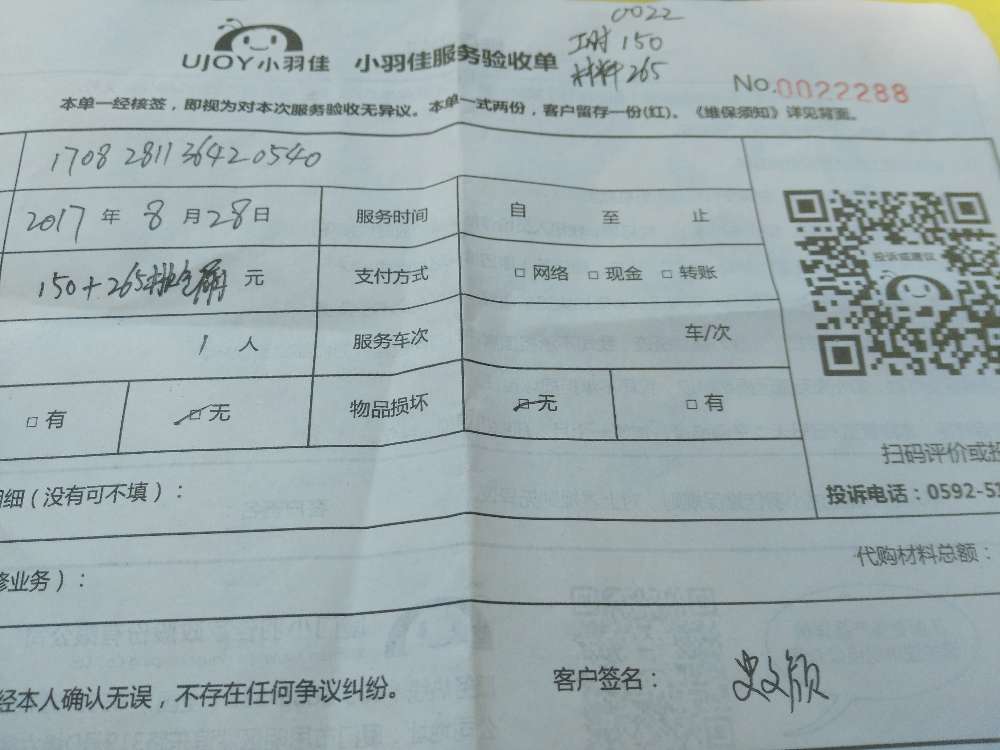 0022
工时 150
材料 265
UJOY小羽佳 小羽佳服务验收单
No.0022288
本单一经核签，即视为对本次服务验收无异议。本单一式两份，客户留存一份(红)。《维保须知》详见背面。
1708 2811 3642 0540
2017 年 8 月 28 日 服务时间 自 至 止
150+265 元 支付方式 □ 网络 □ 现金 □ 转账
投诉或建议
1 人 服务车次 车/次
□ 有 □ 无 物品损坏 □ 无 □ 有
扫码评价或投
细(没有可不填)：
投诉电话：0592-5
代购材料总额：
修业务)：
经本人确认无误，不存在任何争议纠纷。 客户签名：史文颖